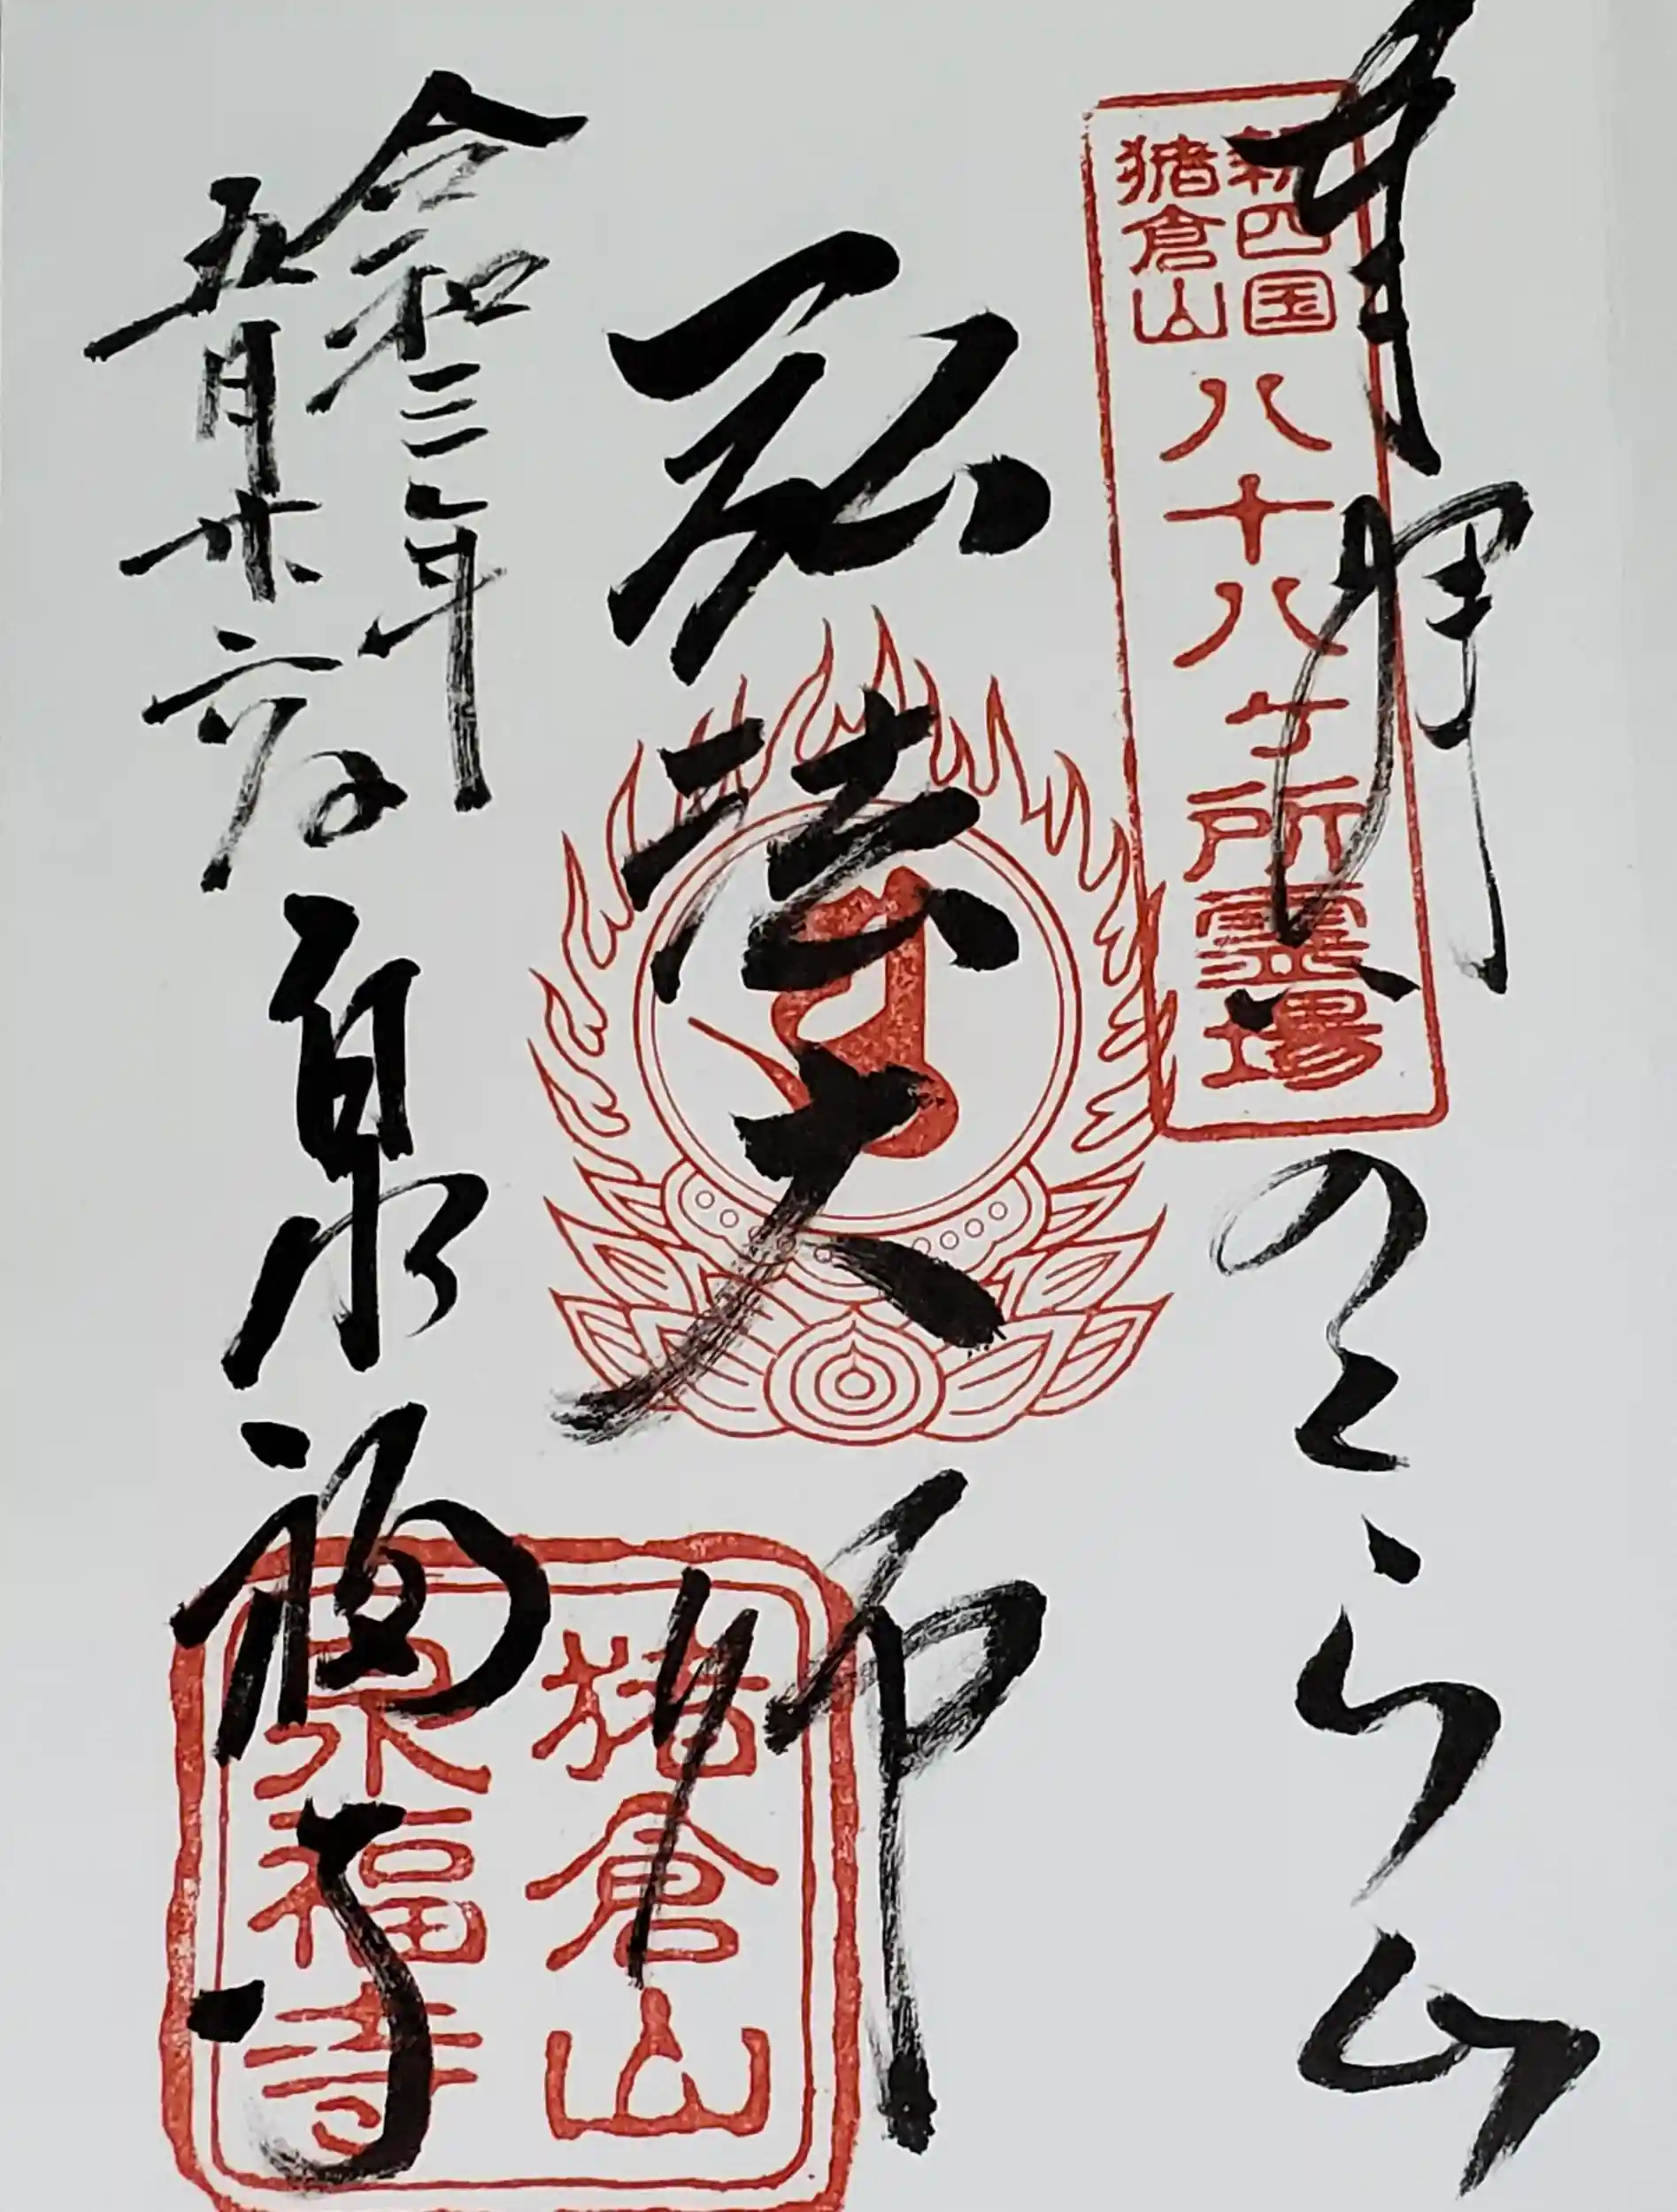 奉拝
いのくら山
新四国
猪倉山
八十八ヶ所霊場
弘法大師
猪倉山
泉福寺
令和三年
五月廿六日
泉福寺